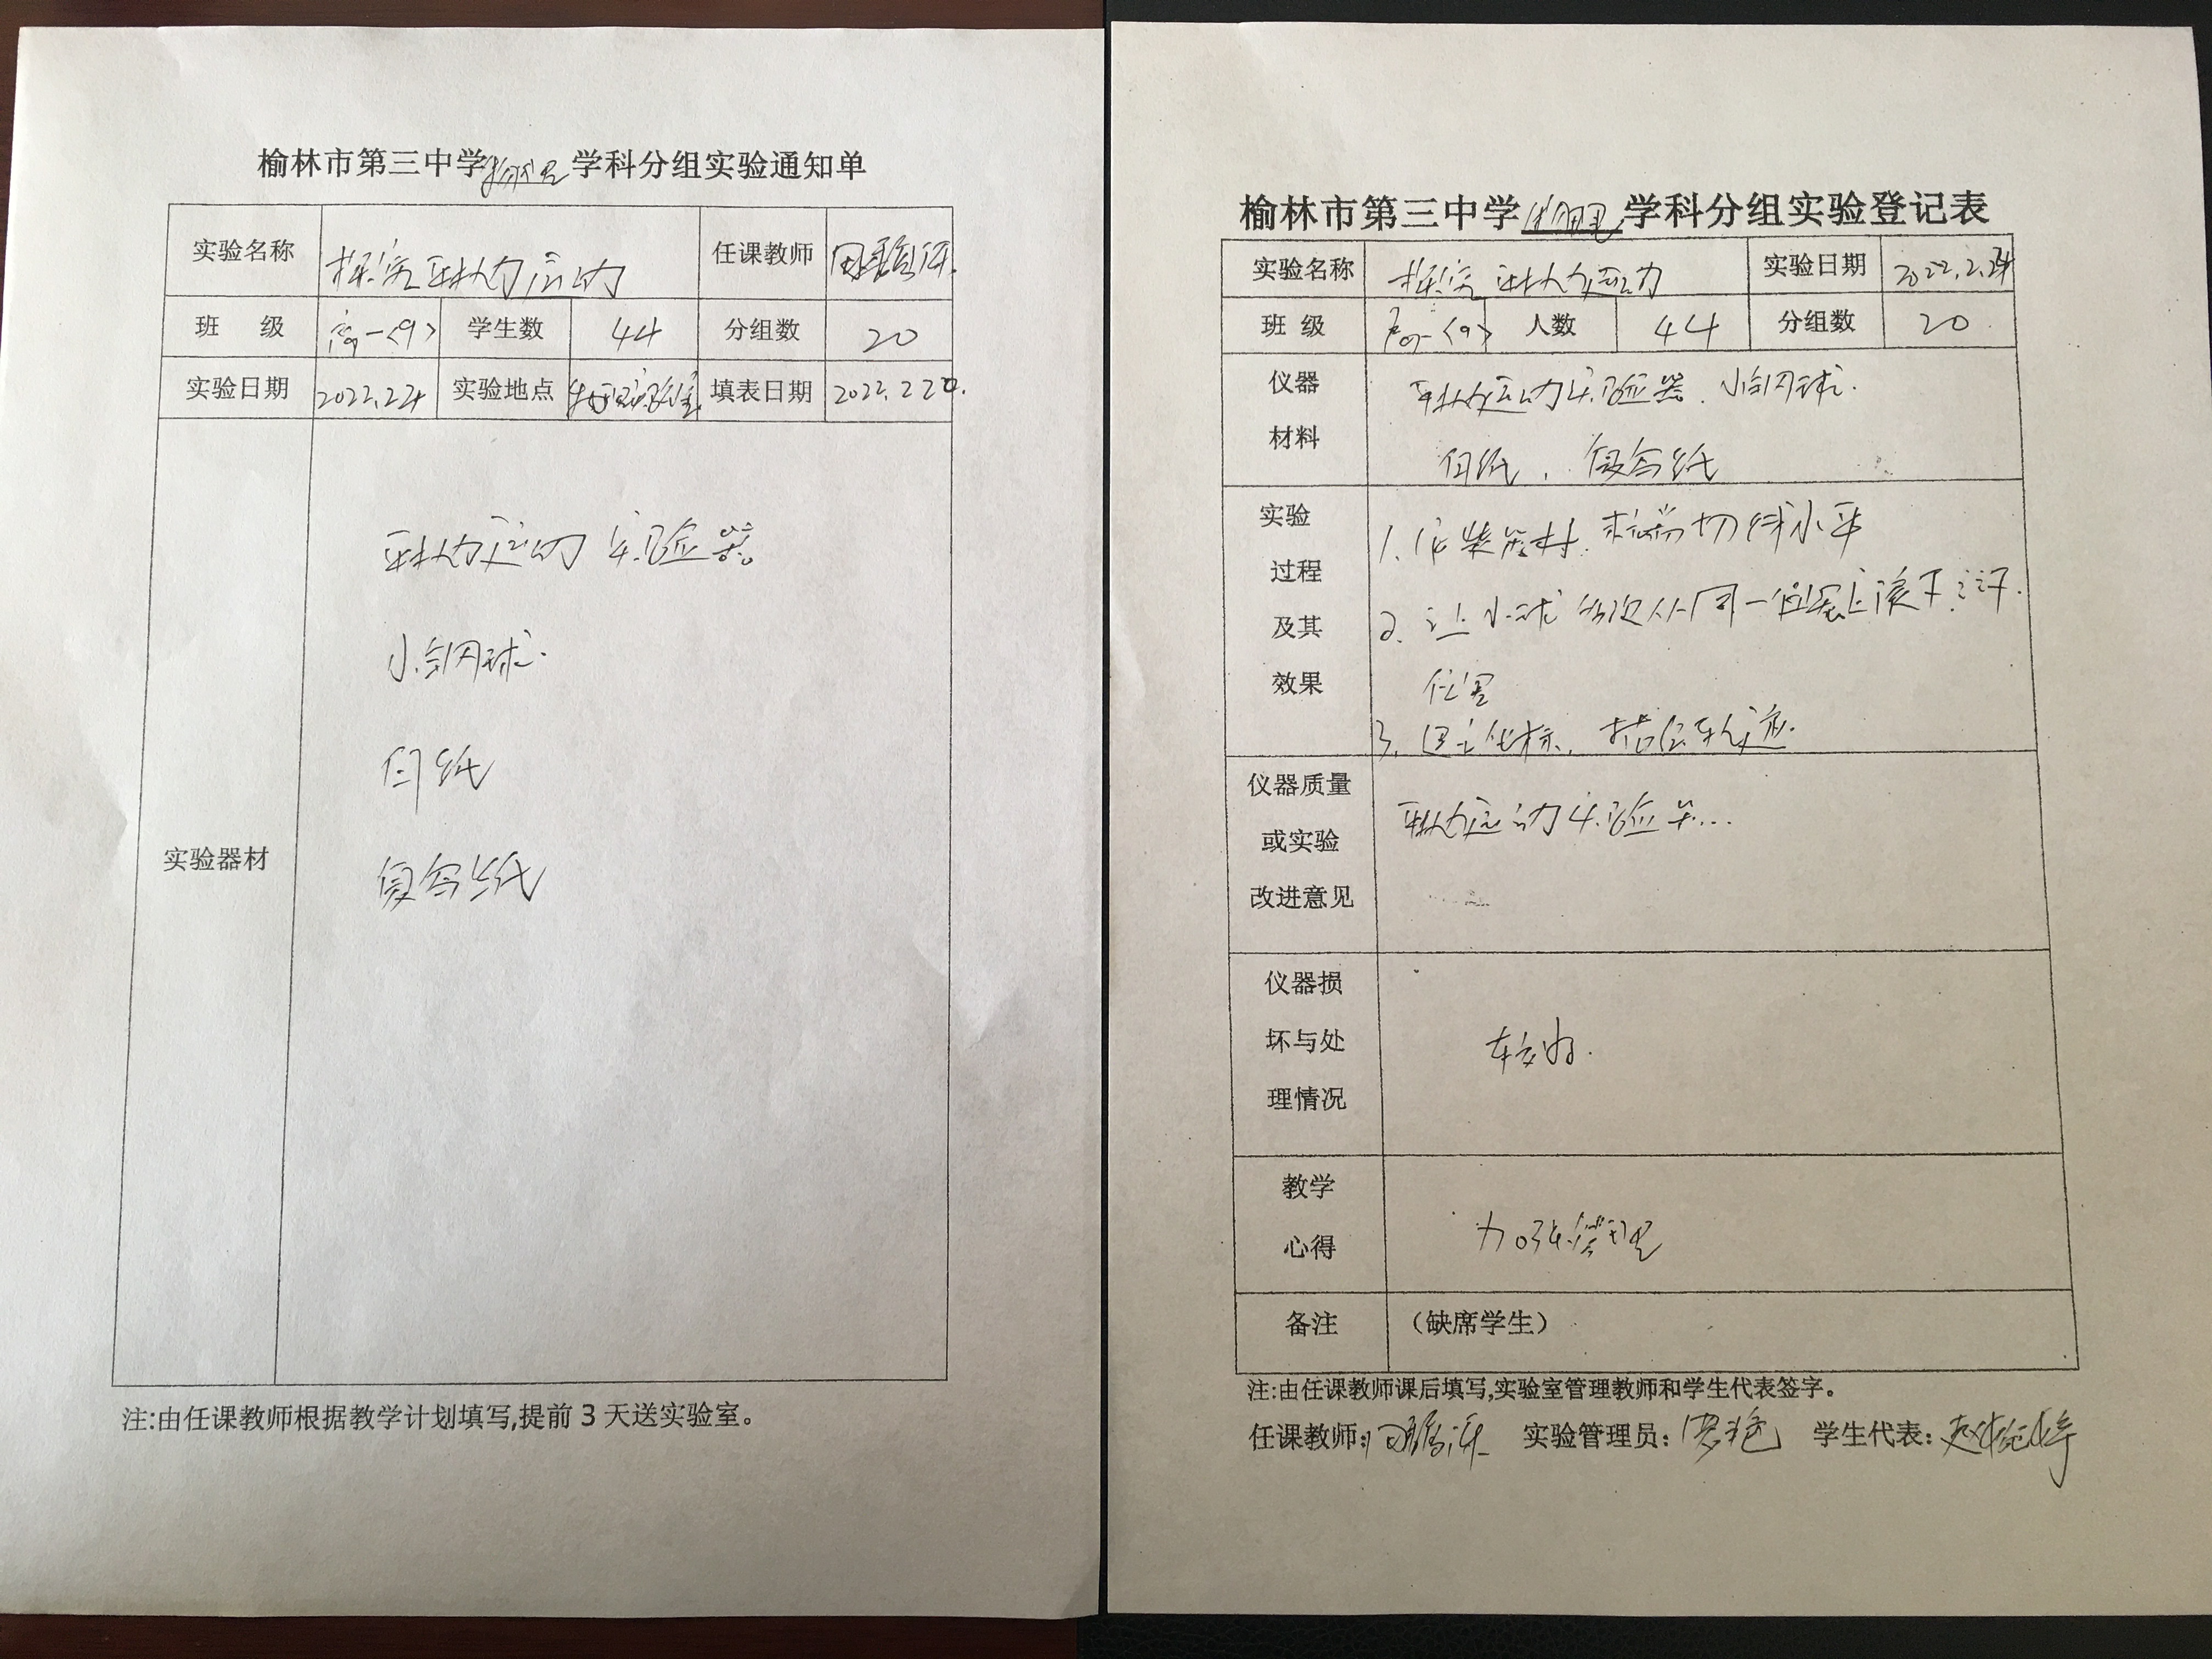 榆林市第三中学物理学科分组实验通知单
实验名称 探究平抛运动 任课教师
班 级 高一<9> 学生数 44 分组数 20
实验日期 2022.2.24 实验地点 物理实验室 填表日期 2022.2.20.
实验器材
平抛运动实验器
小钢球.
白纸
复写纸
注:由任课教师根据教学计划填写,提前3天送实验室。
榆林市第三中学物理学科分组实验登记表
实验名称 探究平抛运动 实验日期 2022.2.24
班 级 高一<9> 人数 44 分组数 20
仪器材料
平抛运动实验器、小钢球.
白纸,复写纸
实验过程及其效果
1.安装器材.末端切线水平
2.让小球多次从同一位置上滚下,记下
位置
3.建立坐标,描绘轨迹.
仪器质量或实验改进意见
平抛运动实验
仪器损坏与处理情况
较好.
教学心得
加强管理
备注 (缺席学生)
注:由任课教师课后填写,实验室管理教师和学生代表签字。
任课教师: 实验管理员: 学生代表: